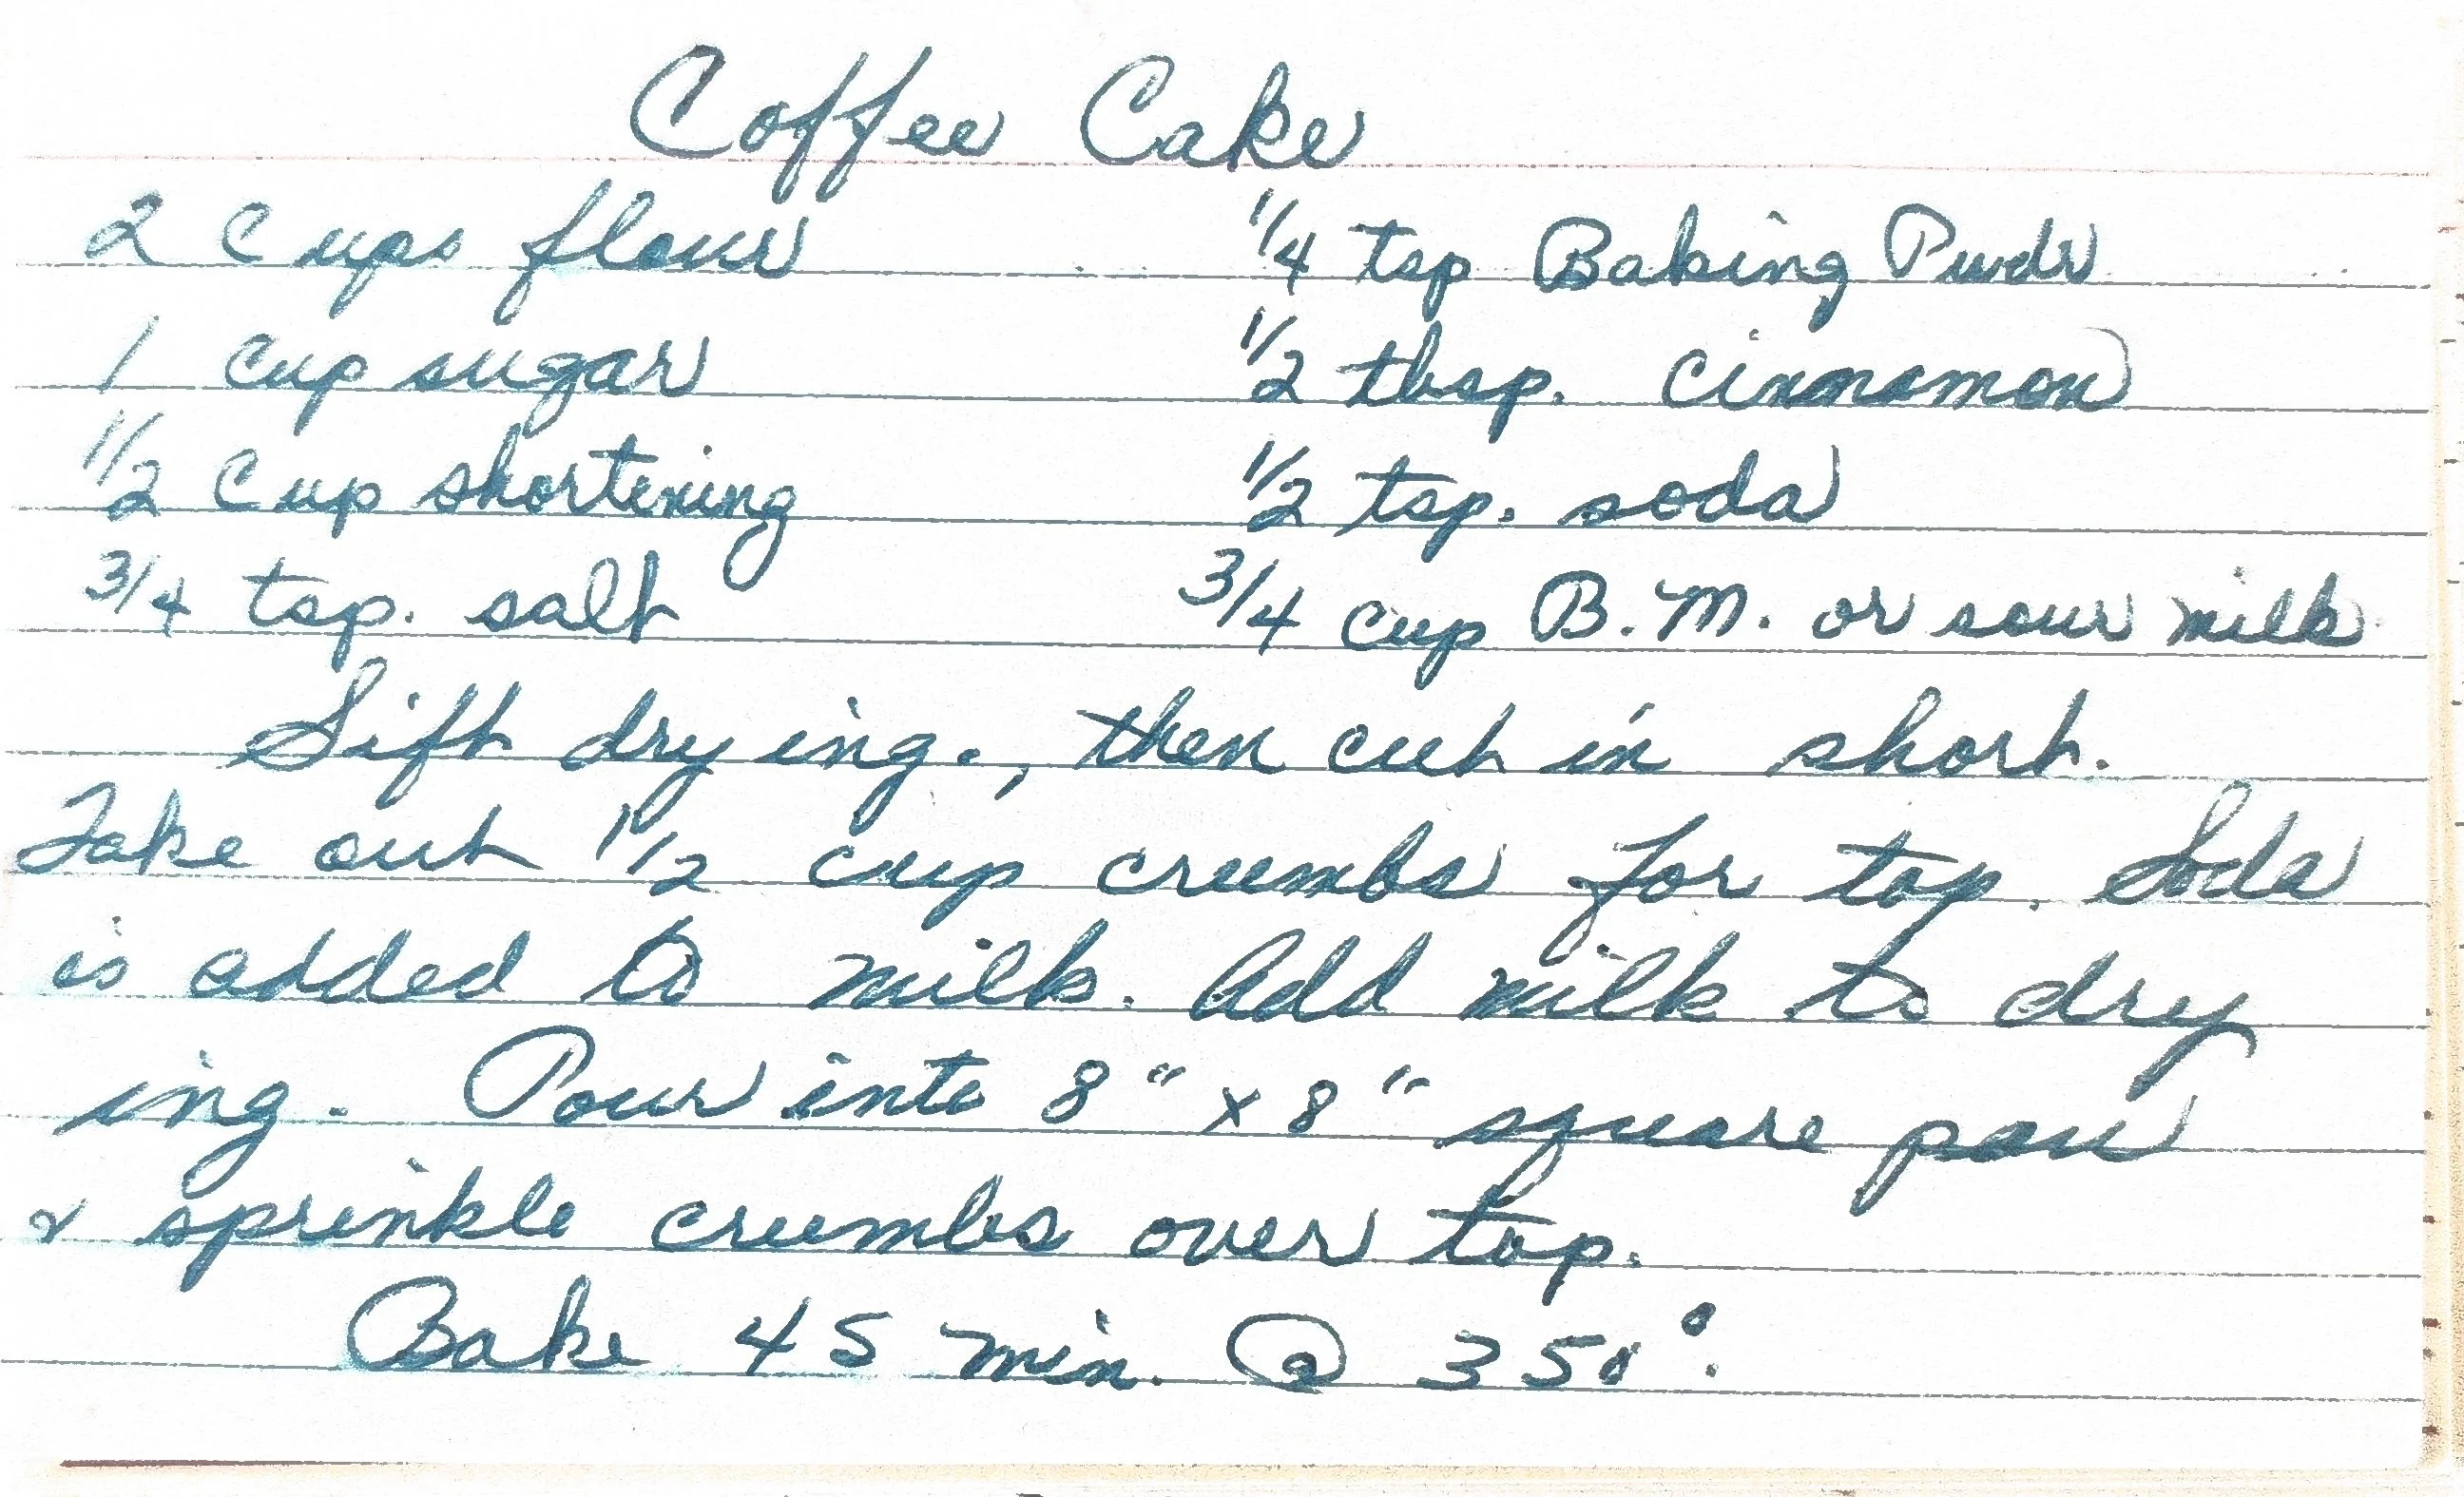 Coffee Cake
2 cups flour 1/4 tsp Baking Pwdr
1 cup sugar 1/2 tbsp. cinnamon
1/2 cup shortening 1/2 tsp. soda
3/4 tsp. salt 3/4 cup B.M. or sour milk
Sift dry ing., then cut in short.
Take out 1/2 cup crumbs for top. Soda
is added to milk. Add milk to dry
ing. Pour into 8" x 8" square pan
& sprinkle crumbs over top.
Bake 45 min. @ 350°.